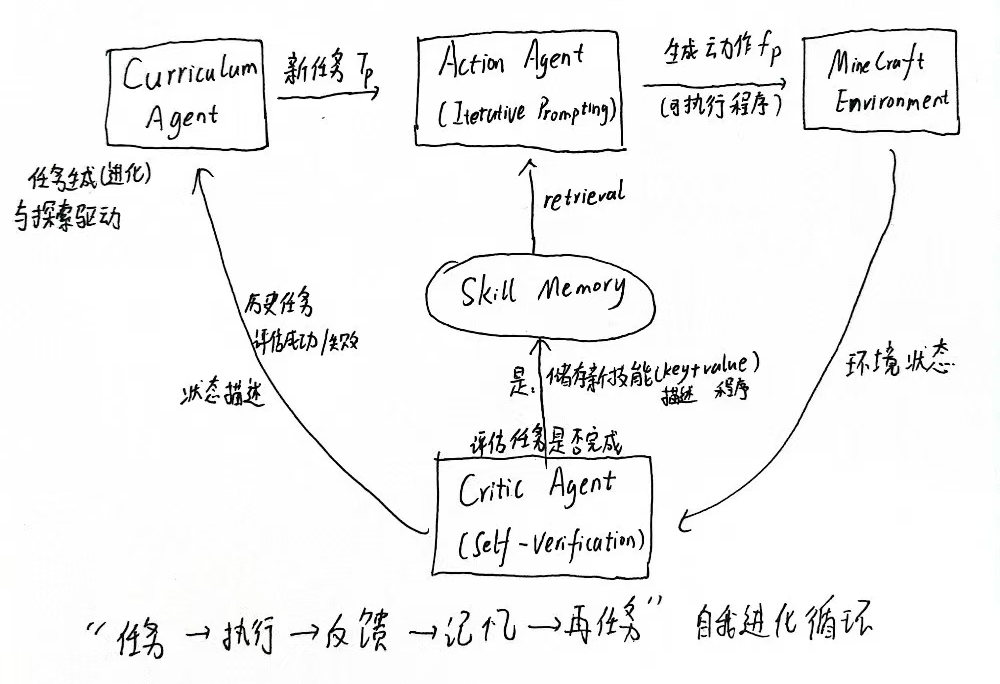 Curriculum
Agent
新任务 Tp
Action Agent
(Iterative Prompting)
生成动作 fp
(可执行程序)
MineCraft
Environment
任务生成(进化)
与探索驱动
retrieval
Skill Memory
历史任务
评估成功/失败
状态描述
是: 储存新技能(key+value)
描述 程序
环境状态
评估任务是否完成
Critic Agent
(Self-Verification)
“任务→执行→反馈→记忆→再任务” 自我进化循环